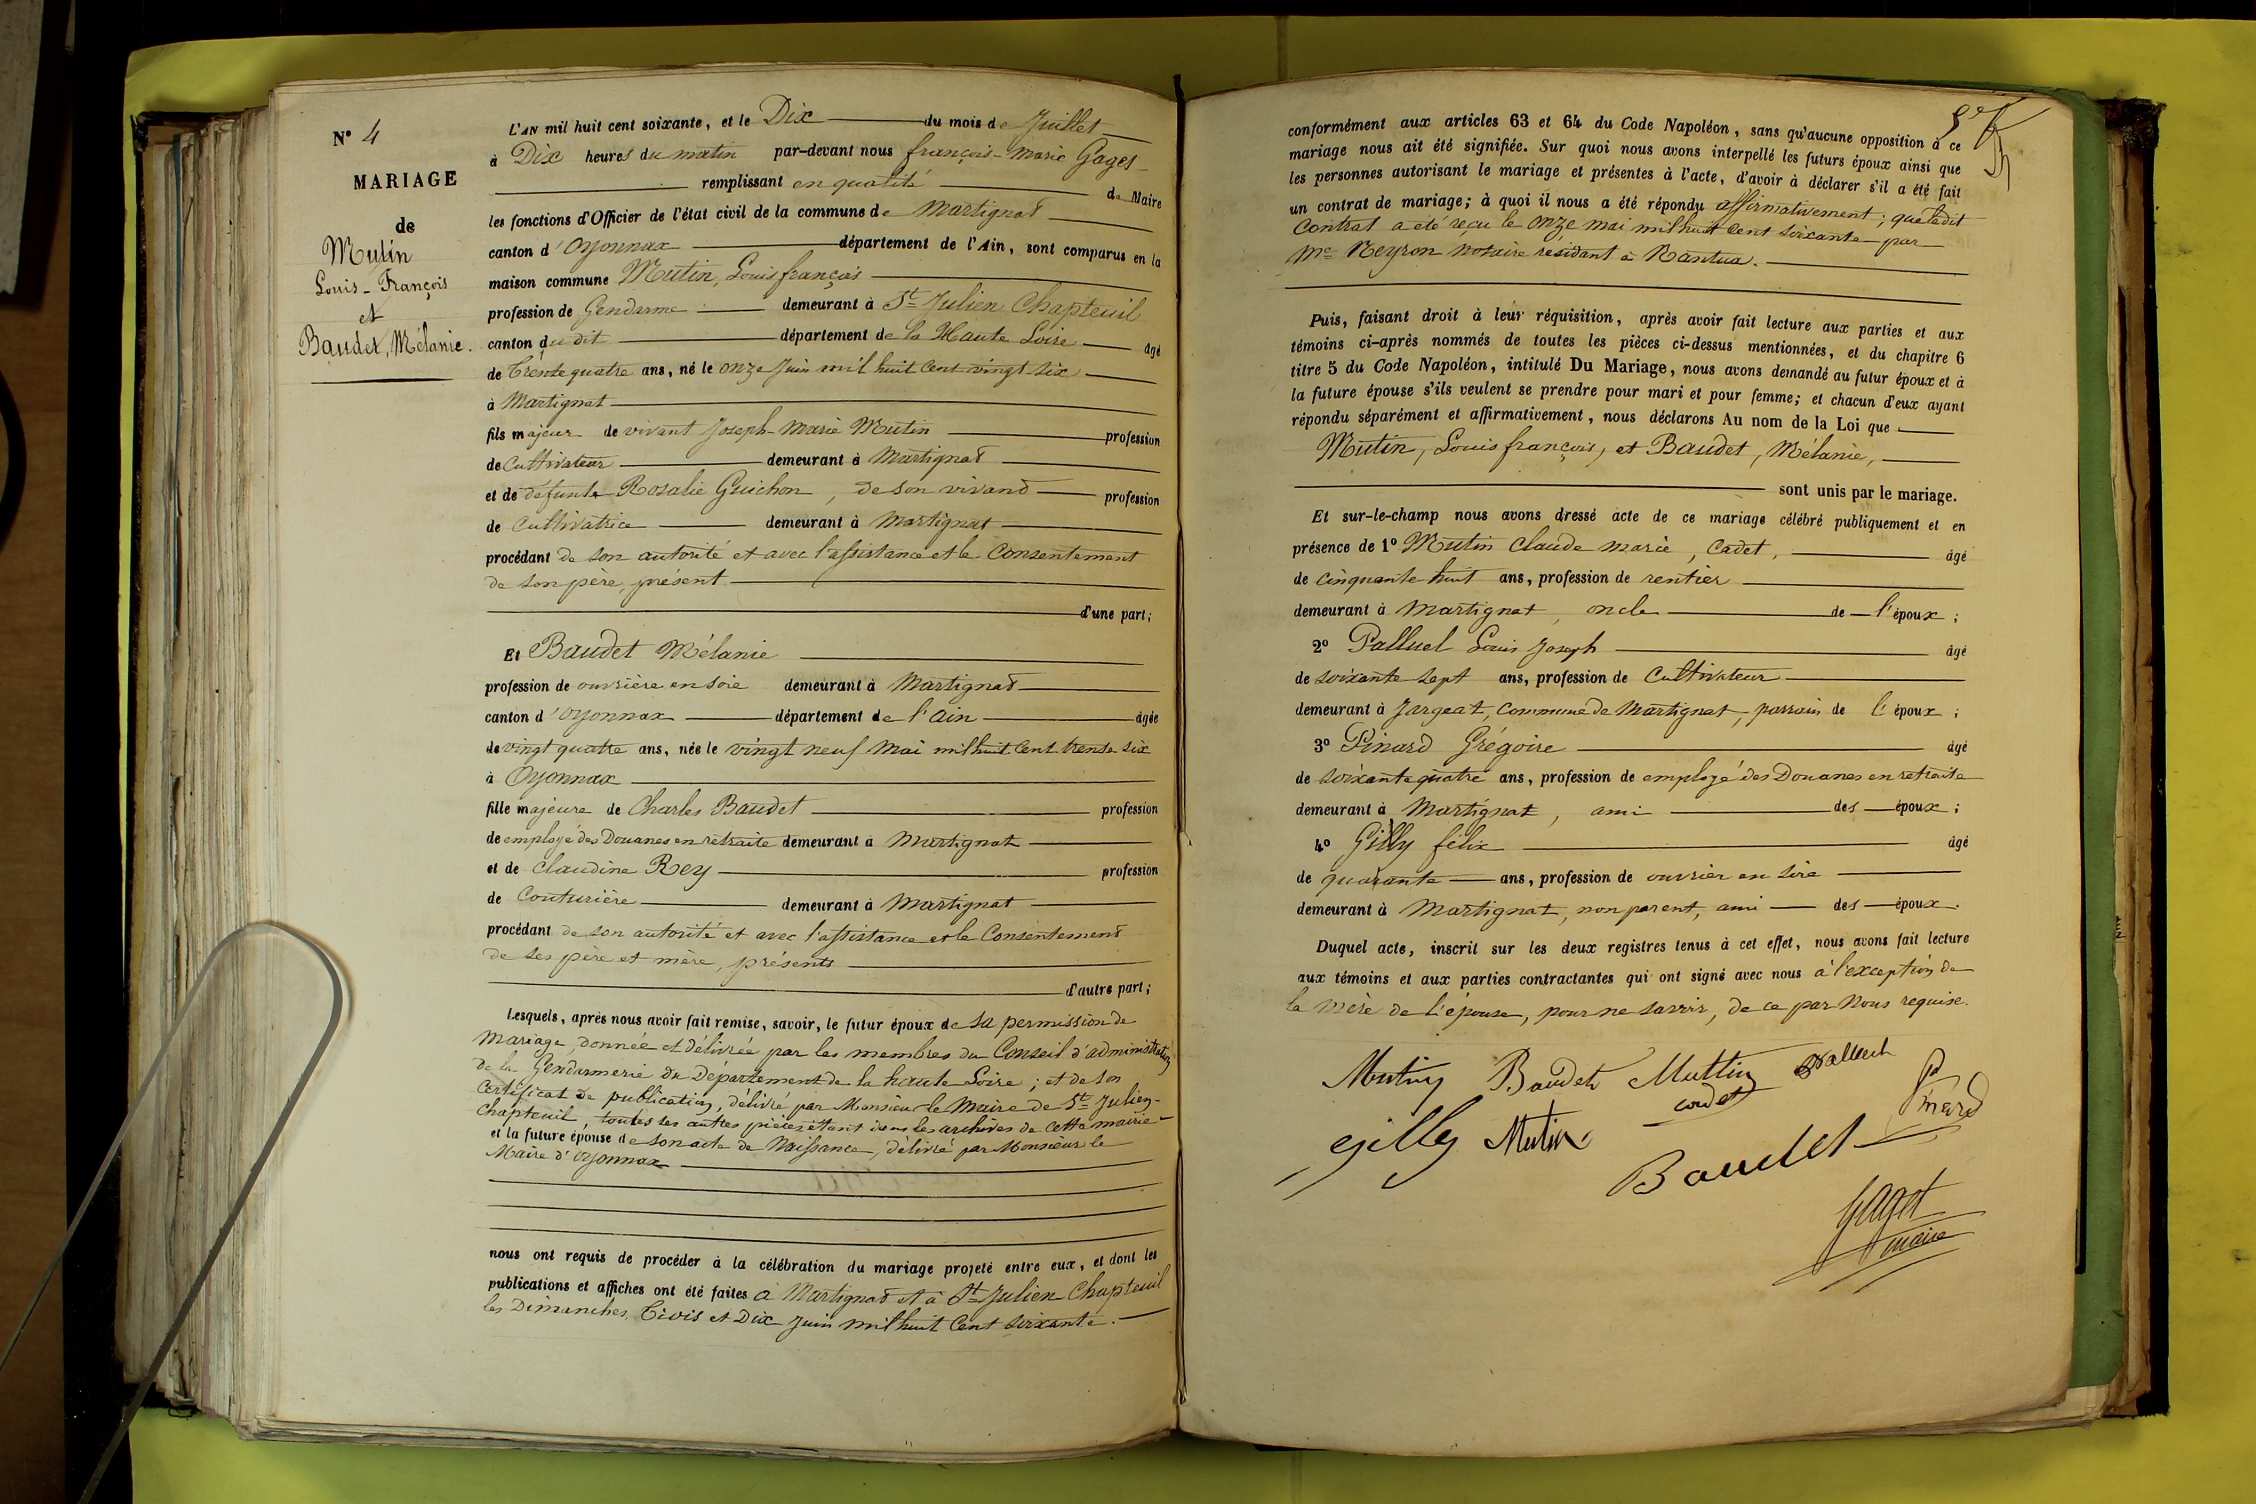 N° 4
MARIAGE
de
Mutin
Louis-François
et
Baudet, Mélanie.
L'AN mil huit cent soixante, et le Dix du mois de Juillet
à Dix heures du matin par-devant nous françois-Marie Gaget
remplissant en qualité de Maire
les fonctions d'Officier de l'état civil de la commune de Martignat
canton d'Oyonnax département de l'Ain, sont comparus en la
maison commune Mutin, Louis françois
profession de Gendarme demeurant à St Julien Chapteuil
canton du dit département de la Haute Loire âgé
de trente quatre ans, né le onze Juin mil huit Cent vingt six
à Martignat
fils majeur de vivant Joseph-Marie Mutin profession
de Cultivateur demeurant à Martignat
et de défunte Rosalie Guichon, de son vivant profession
de Cultivatrice demeurant à Martignat
procédant de son autorité et avec l'assistance et le Consentement
de son père, présent
d'une part;
Et Baudet Mélanie
profession de ouvrière en soie demeurant à Martignat
canton d'Oyonnax département de l'Ain âgée
de vingt quatre ans, née le vingt neuf Mai mil huit Cent trente six
à Oyonnax
fille majeure de Charles Baudet profession
de employé des Douanes en retraite demeurant à Martignat
et de Claudine Rey profession
de Couturière demeurant à Martignat
procédant de son autorité et avec l'assistance et le Consentement
de ses père et mère, présents
d'autre part;
Lesquels, après nous avoir fait remise, savoir, le futur époux de sa permission de
Mariage, donnée et délivrée par les membres du Conseil d'administration
de la Gendarmerie du Département de la haute Loire; et de son
Certificat de publication, délivré par Monsieur le Maire de St Julien-
Chapteuil, toutes ses autres pièces étant dans les archives de cette mairie
et la future épouse de son acte de Naissance, délivré par Monsieur le
Maire d'Oyonnax
nous ont requis de procéder à la célébration du mariage projeté entre eux, et dont les
publications et affiches ont été faites à Martignat et à St Julien Chapteuil
les Dimanches, Trois et Dix Juin mil huit Cent soixante.
conformément aux articles 63 et 64 du Code Napoléon, sans qu'aucune opposition à ce
mariage nous ait été signifiée. Sur quoi nous avons interpellé les futurs époux ainsi que
les personnes autorisant le mariage et présentes à l'acte, d'avoir à déclarer s'il a été fait
un contrat de mariage; à quoi il nous a été répondu affirmativement; que ledit
Contrat a été reçu le onze mai mil huit Cent soixante par
Me Reyron notaire résidant à Nantua.
Puis, faisant droit à leur réquisition, après avoir fait lecture aux parties et aux
témoins ci-après nommés de toutes les pièces ci-dessus mentionnées, et du chapitre 6
titre 5 du Code Napoléon, intitulé Du Mariage, nous avons demandé au futur époux et à
la future épouse s'ils veulent se prendre pour mari et pour femme; et chacun d'eux ayant
répondu séparément et affirmativement, nous déclarons Au nom de la Loi que
Mutin, Louis françois, et Baudet, Mélanie,
sont unis par le mariage.
Et sur-le-champ nous avons dressé acte de ce mariage célébré publiquement et en
présence de 1° Mutin Claude Marie, Cadet, âgé
de cinquante huit ans, profession de rentier
demeurant à Martignat, oncle de l'époux;
2° Palluel Louis Joseph âgé
de soixante sept ans, profession de Cultivateur
demeurant à Jargeat, Commune de Martignat, parrain de l'époux;
3° Pinard Grégoire âgé
de soixante quatre ans, profession de employé des Douanes en retraite
demeurant à Martignat, ami des époux;
4° Gilly félix âgé
de quarante ans, profession de ouvrier en soie
demeurant à Martignat, non parent, ami des époux.
Duquel acte, inscrit sur les deux registres tenus à cet effet, nous avons fait lecture
aux témoins et aux parties contractantes qui ont signé avec nous à l'exception de
la mère de l'épouse, pour ne savoir, de ce par Nous requise.
Mutin Baudet Muttin cadet Palluel Pinard
gilly Mutin
Baudet
Gaget
maire